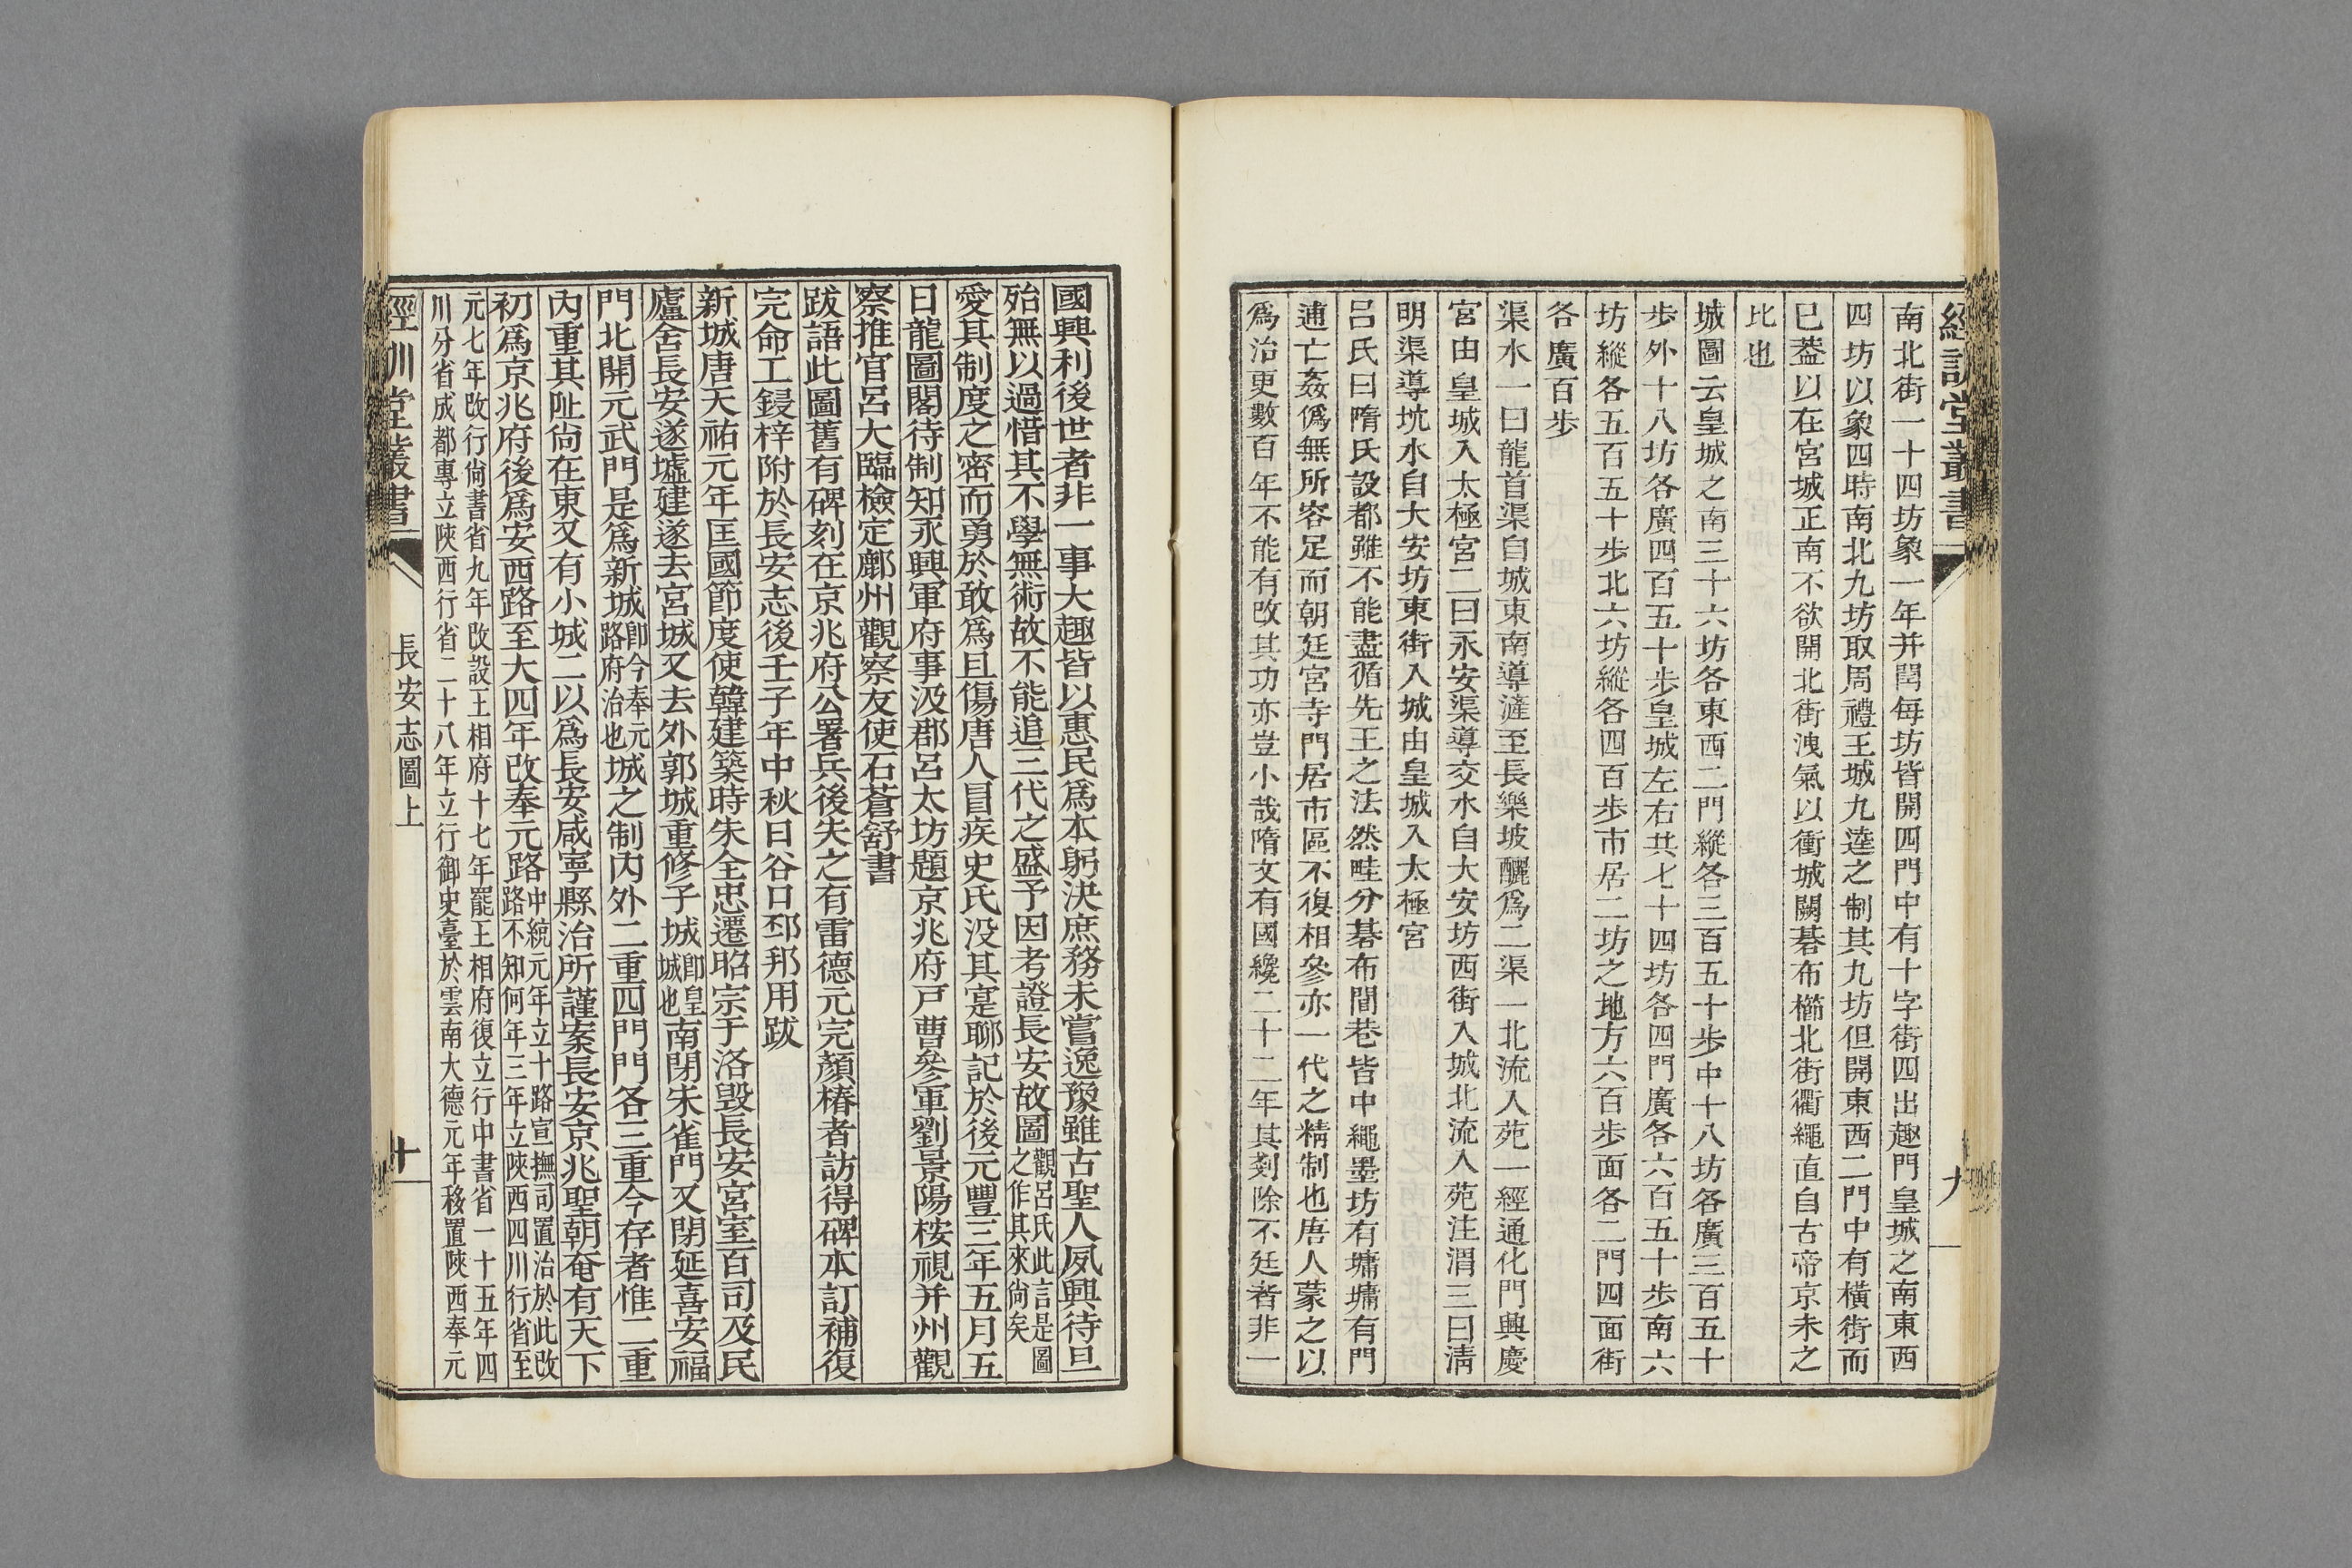 經訓堂叢書
九
南北街一十四坊象一年并閏每坊皆開四門中有十字街四出趣門皇城之南東西
四坊以象四時南北九坊取周禮王城九逵之制其九坊但開東西二門中有橫街而
已葢以在宮城正南不欲開北街洩氣以衝城闕碁布櫛比街衢繩直自古帝京未之
比也
城圖云皇城之南三十六坊各東西二門縱各三百五十步中十八坊各廣三百五十
步外十八坊各廣四百五十步皇城左右共七十四坊各四門廣各六百五十步南六
坊縱各五百五十步北六坊縱各四百步市居二坊之地方六百步面各二門四面街
各廣百步
渠水一曰龍首渠自城東南導滻至長樂坡釃爲二渠一北流入苑一經通化門興慶
宮由皇城入太極宮二曰永安渠導交水自大安坊西街入城北流入苑注渭三曰淸
明渠導坑水自大安坊東街入城由皇城入太極宮
呂氏曰隋氏設都雖不能盡循先王之法然畦分碁布閭巷皆中繩墨坊有墉墉有門
逋亡姦僞無所容足而朝廷宮寺門居市區不復相參亦一代之精制也唐人蒙之以
爲治更數百年不能有改其功亦豈小哉隋文有國纔二十二年其剗除不廷者非一
國興利後世者非一事大趣皆以惠民爲本躬決庶務未嘗逸豫雖古聖人夙興待旦
殆無以過惜其不學無術故不能追三代之盛予因考證長安故圖觀呂氏此言是圖之作其來尙矣
愛其制度之密而勇於敢爲且傷唐人冒疾史氏没其寔聊記於後元豐三年五月五
日龍圖閣待制知永興軍府事汲郡呂大坊題京兆府戸曹參軍劉景陽桉視幷州觀
察推官呂大臨檢定鄜州觀察友使石蒼舒書
跋語此圖舊有碑刻在京兆府公署兵後失之有雷德元完顏椿者訪得碑本訂補復
完命工鋟梓附於長安志後壬子年中秋日谷口邳邦用跋
新城唐天祐元年匡國節度使韓建築時朱全忠遷昭宗于洛毁長安宮室百司及民
廬舍長安遂墟建遂去宮城又去外郭城重修子城卽皇城也南閉朱雀門又閉延喜安福
門北開元武門是爲新城卽今奉元路府治也城之制内外二重四門門各三重今存者惟二重
内重其阯尙在東又有小城二以爲長安咸寧縣治所謹案長安京兆聖朝奄有天下
初爲京兆府後爲安西路至大四年改奉元路中統元年立十路宣撫司置治於此改路不知何年三年立陝西四川行省至
元七年改行尙書省九年改設王相府十七年罷王相府復立行中書省一十五年四川分省成都專立陝西行省二十八年立行御史臺於雲南大德元年移置陝西奉元
經訓堂叢書
長安志圖上
十一